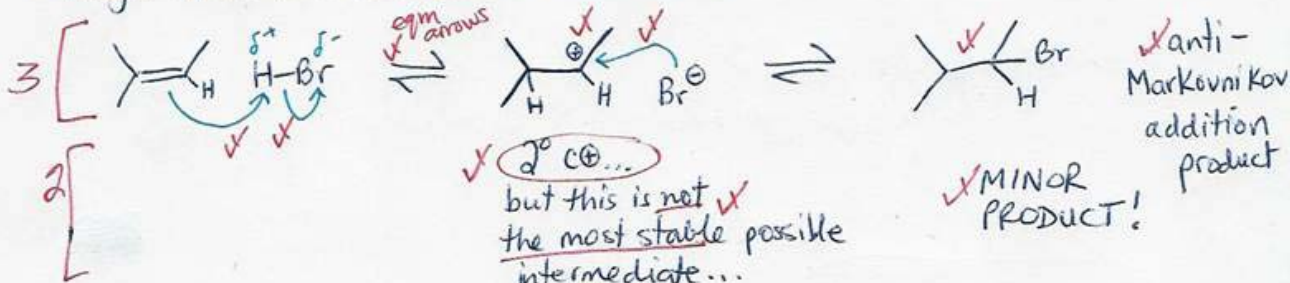 3
δ+ δ-
H-Br
H
eqm arrows
⇌
⊕
H
H
Br⊖
⇌
Br
H
anti-
Markovnikov
addition
product
2
2° C⊕...
but this is not
the most stable possible
intermediate...
MINOR
PRODUCT!